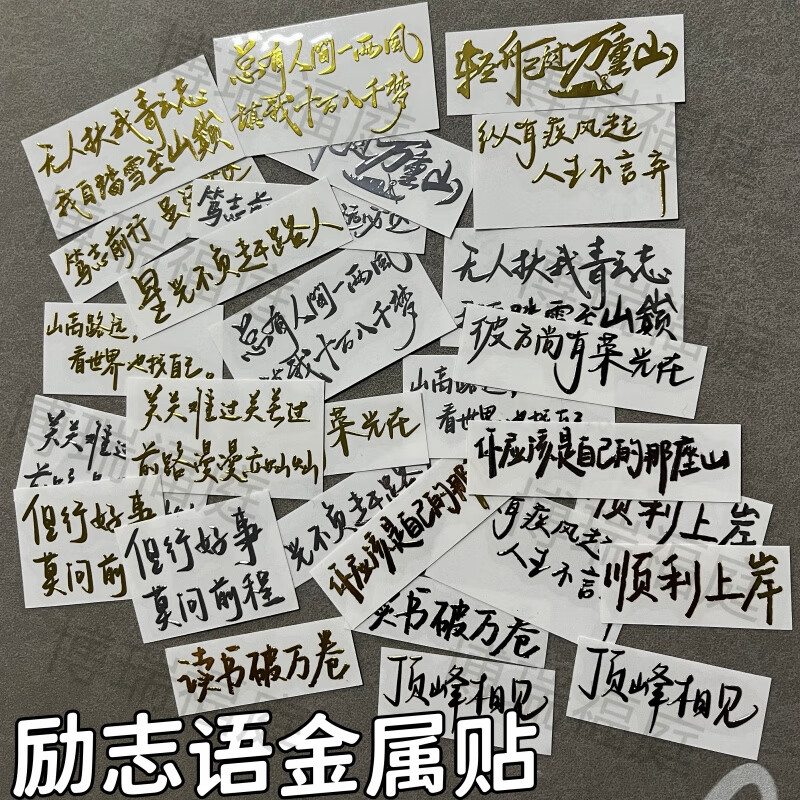 总有人间一两風
填我十万八千梦
轻舟已过万重山
无人扶我青云志
我自踏雪至山巅
纵有疾风起
人生不言弃
万重山
笃志
笃志前行
星光不负赶路人
无人扶我青云志
踏雪至山巅
总有人间一两風
我十万八千梦
彼方尚有荣光在
山高路远,
看世界也找自己。
山高路远,
看世界也找自己
关关难过关关过
前路漫漫亦灿灿
关关难过
荣光在
你应该是自己的那座山
但行好事
莫问前
但行好事
莫问前程
光不负赶路
你应该是自己的那
有疾风起
人生不言
顺利上岸
顺利上岸
读书破万卷
读书破万卷
顶峰相见
顶峰相见
励志语金属贴